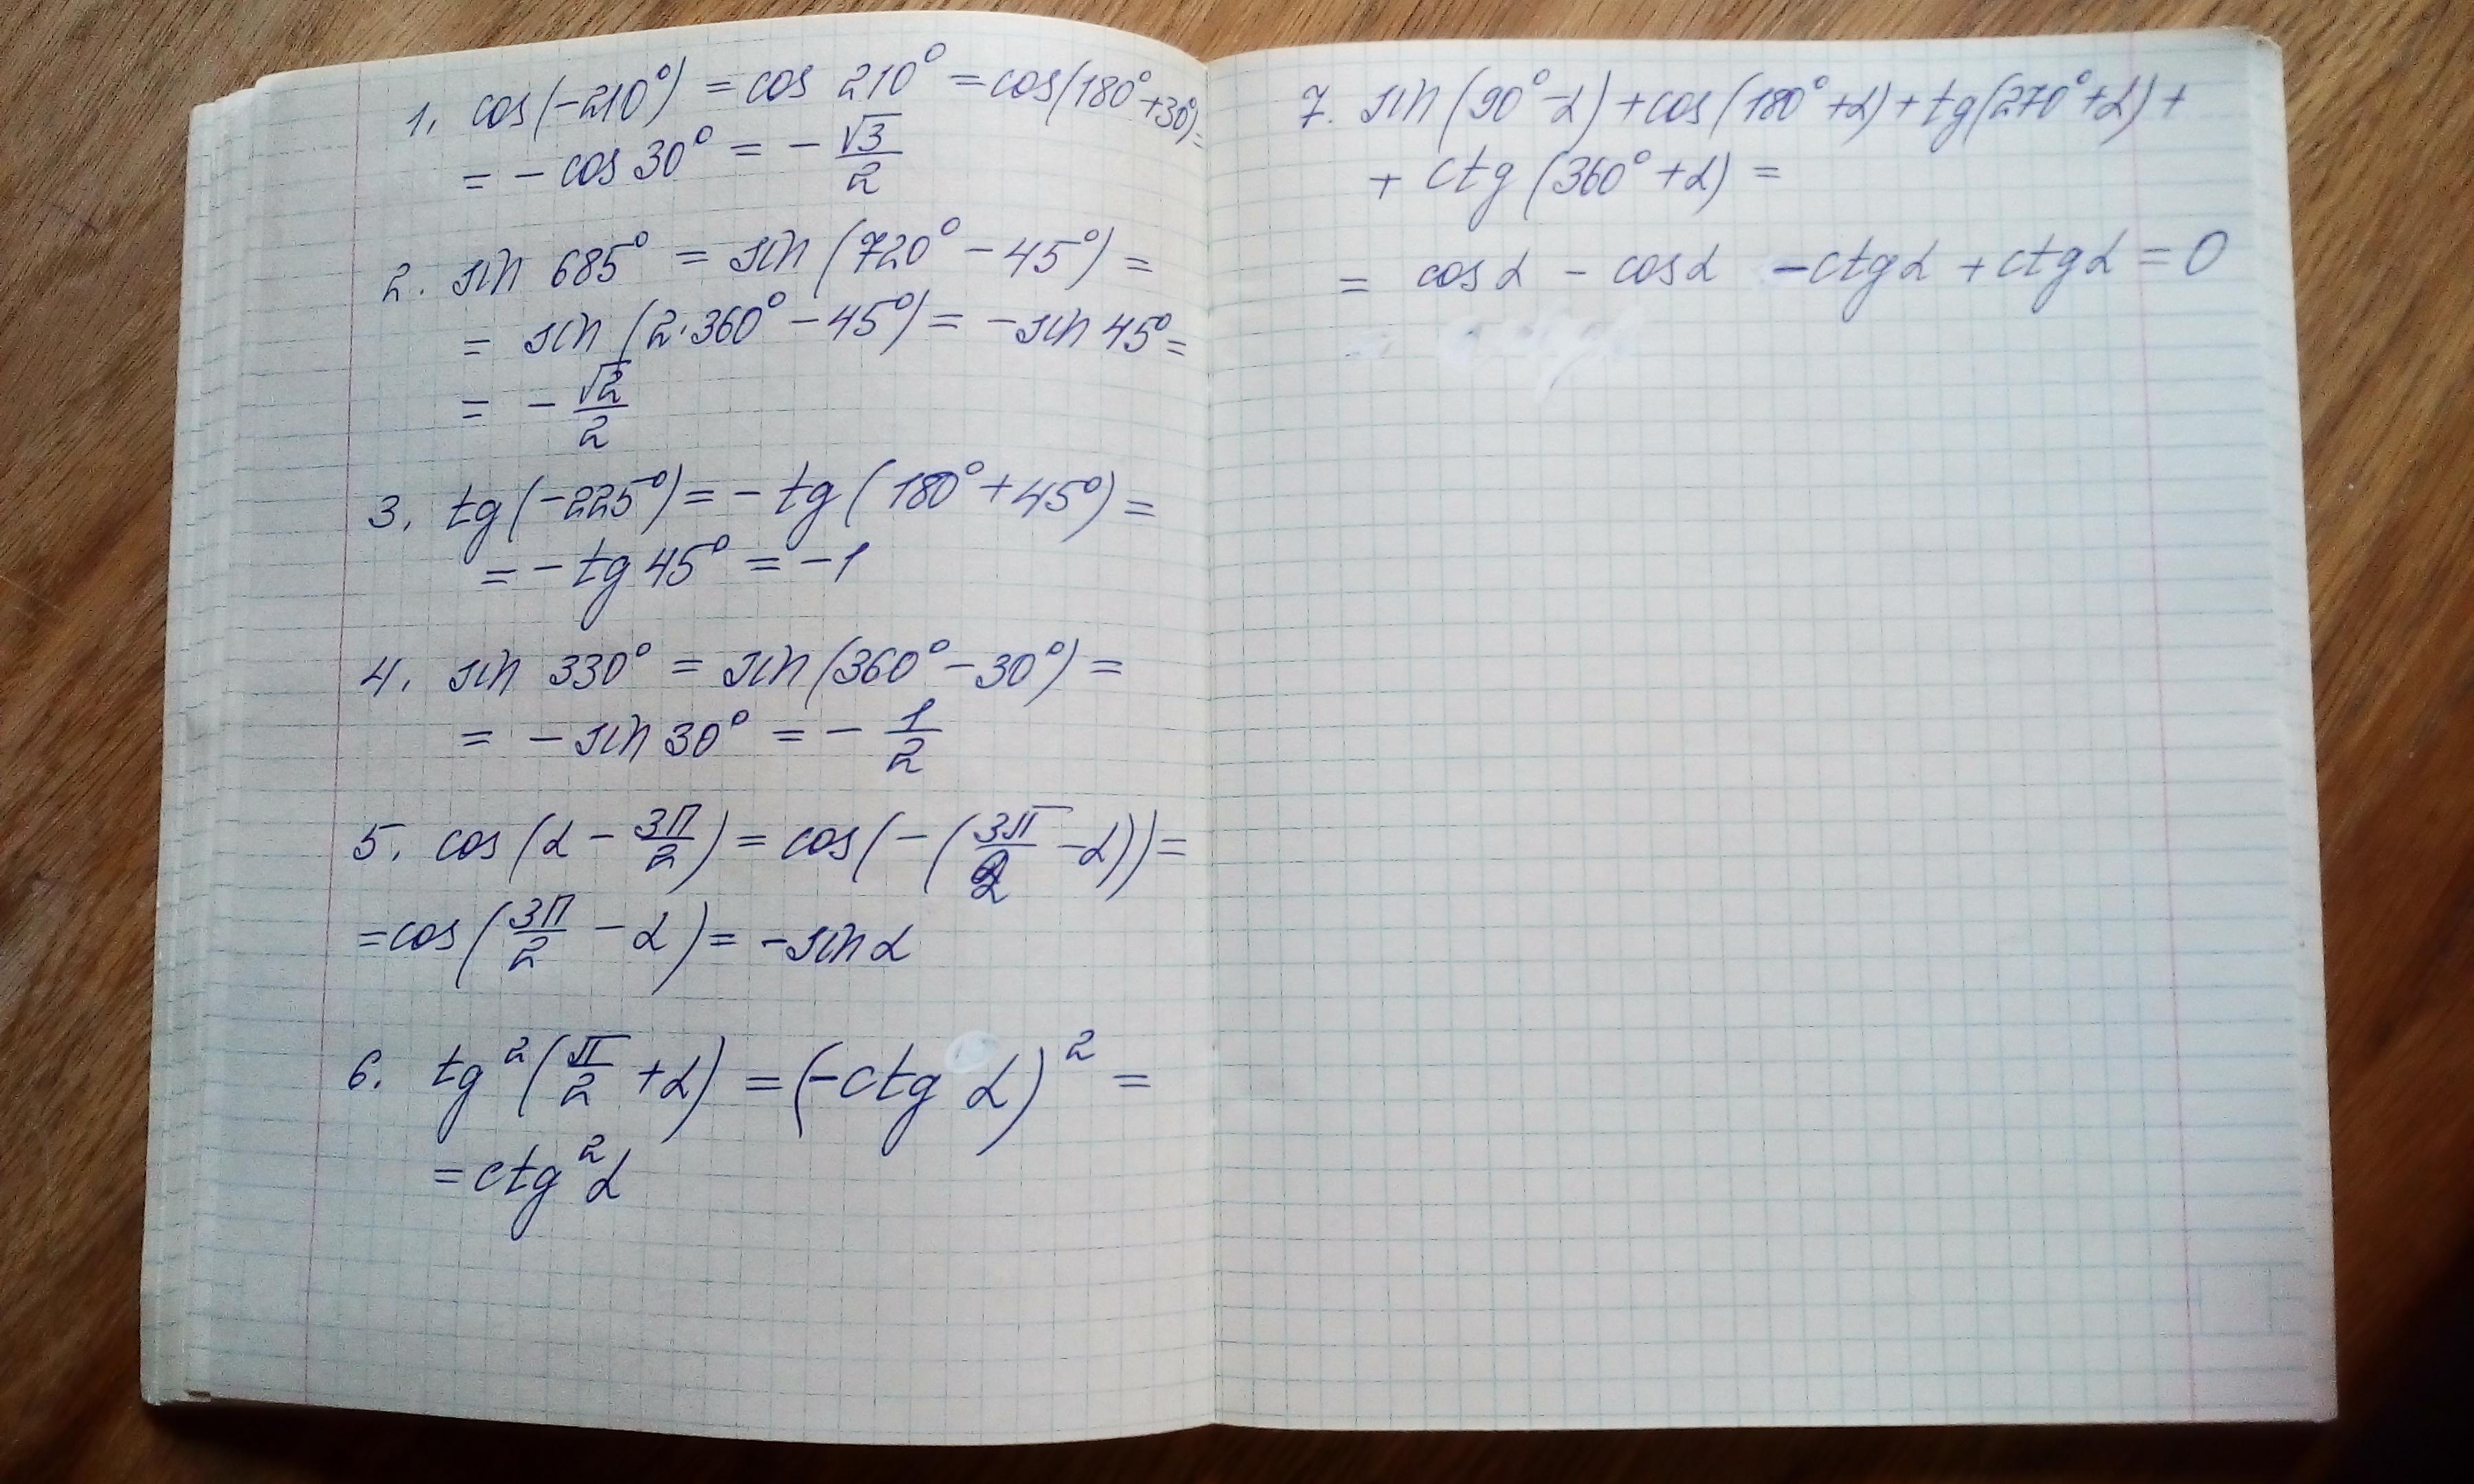 1. cos(-210°) = cos 210° = cos(180°+30°)=
= - cos 30° = - √3/2
2. sin 685° = sin (720° - 45°) =
= sin (2·360° - 45°) = - sin 45° =
= - √2/2
3. tg(-225°) = - tg (180° + 45°) =
= - tg 45° = -1
4. sin 330° = sin(360° - 30°) =
= - sin 30° = - 1/2
5. cos(α - 3π/2) = cos(-(3π/2 - α)) =
= cos(3π/2 - α) = - sin α
6. tg²(π/2 + α) = (-ctg α)² =
= ctg²α
7. sin(90°-α) + cos(180°+α) + tg(270°+α) +
+ ctg (360° + α) =
= cos α - cos α - ctg α + ctg α = 0